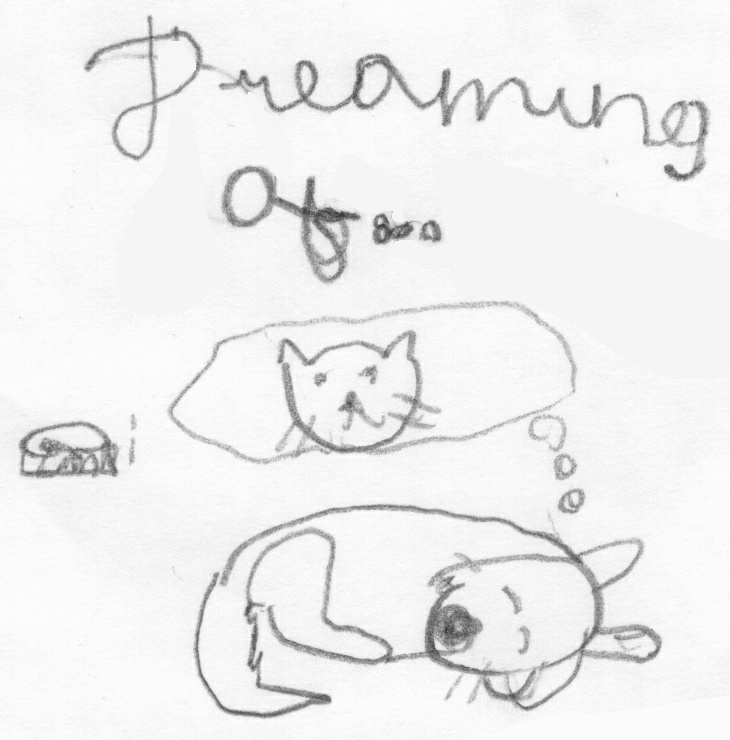 Dreaming
Of...